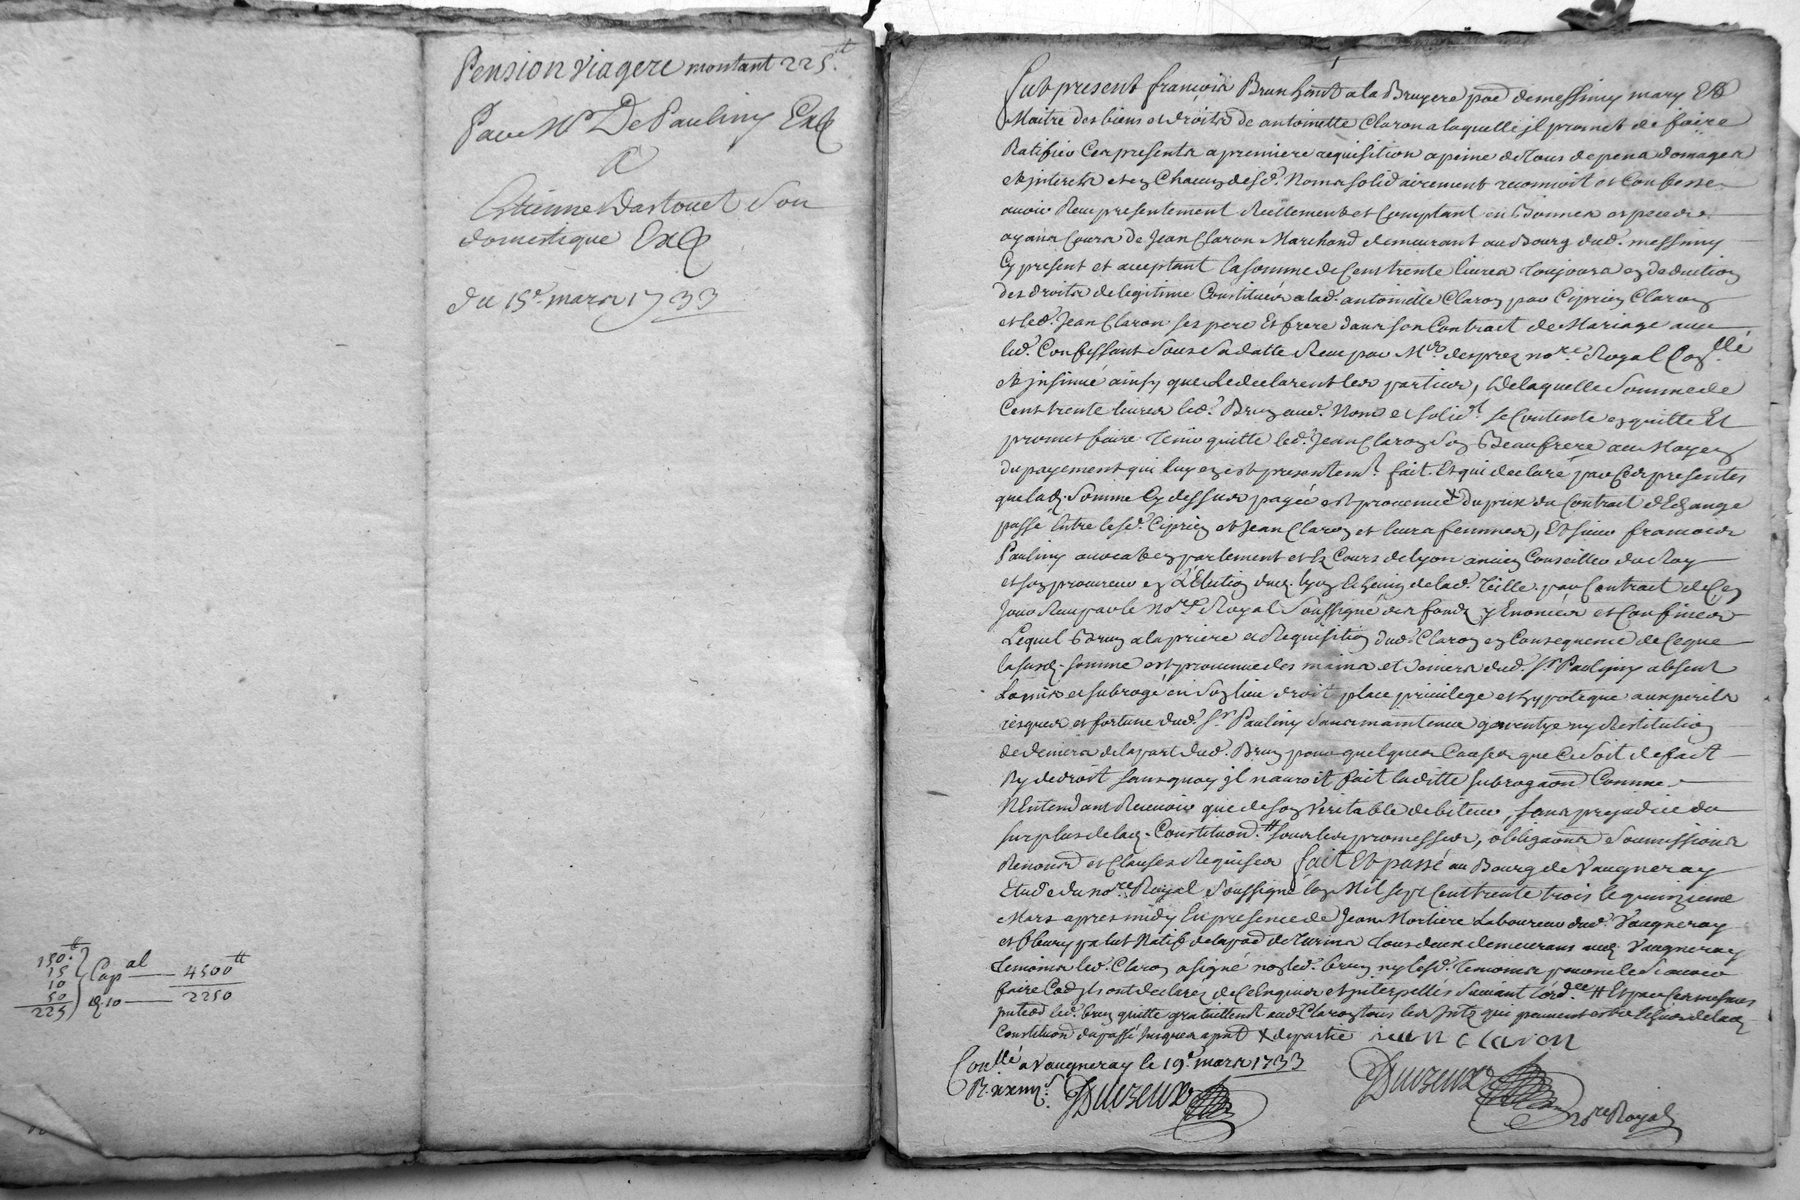 Pension viagere montant 225.tt
Par Mr De Pauliny Exp
A
Estienne Dartouet Son
domestique Exp
du 15e mars 1733
150.tt
15
10
50
225
Cap al — 4500tt
10 — 2250
Fut present françois Brun habitt a la Bruyere psse de messimy mary Et
Maitre des biens et droits de antoinette Claron a laquelle jl promet de faire
Ratifier Ces presentes a premiere requisition a peine de tous depens domages
et jnterets et en Chacun desd. Noms solidairement reconnoit et Confesse
avoir Reçu presentement Reellement et Comptant en Bonnes especes
ayans Cours de Jean Claron Marchand demeurant au Bourg dud. messimy
Cy present et aceptant la somme de Cens trente livres toujours en deduction
des droits de legitime Constitués a lad. antoinette Claron par Ciprien Claron
et led. Jean Claron ses pere Et frere dans son Contract de Mariage avec
led. Confessant Sous Sa datte Reçu par Me desprez nore Royal Conllé
et jnsinué ainsy que le declarent les parties, De laquelle Somme de
Cens trente livres led. Brun aud. Noms et solid. se Contente en quitte Et
promet faire tenir quitte led. Jean Claron Son Beaufrere au Moyen
du payement qui luy en est presentemt fait. Et qui declare par Ces presentes
que lad. somme Cy dessus payée est provenue x du prix du Contract d'Echange
passé Entre lesd. Ciprien et Jean Claron et leurs femmes, Et sieur francois
Pauliny avocat en parlement et Es Cours de lyon ancien Conseiller du Roy
et son procureur en L'Election dud. lyon Echevin de lad. Ville par Contract de Ce
Jour Reçu par le nore Royal Soussigné des fonds y Enoncés et Confinés
Lequel Brun a la priere et Requisition dud. Claron en Consequence de Ceque
la susd. somme est provenue des mains et deniers dud. Sr Pauliny absent
La mis et subrogé en Son lieu droit place privilege et hypoteque aux perils
risques et fortune dud. Sr Pauliny Sans maintenue garentye ny Restitution
de deniers de la part dud. Brun pour quelques Causes que Ce Soit de fait
Ny de droit sans quoy jl n'auroit fait laditte subrogaon Comme
N'Entendant Recevoir que de son veritable debiteur, sans prejudice du
surplus de lad. Constitution. # sous les promesses, obligaons Soumissions
Renonons et Clauses Requises fait Et passé au Bourg de Vaugneray
Etude du nore Royal Soussigné l'an Mil sept Cent trente trois le quinzieme
Mars apres midy En presence de Jean Mortiere Laboureur dud. Vaugneray
et fleury palut Natif de la psse de Turins tous deux demeurans aud. Vaugneray
temoins led. Claron a signé non led. brun ny lesd. temoins pour ne le Scavoir
faire Co ils ont declarez de Ce Enquis et jnterpellés Suivant l'ordce # Et par Ces mesmes
led. brun quitte gratuittemt aud. Claron tous les jnts qui peuvent estre Echus de lad.
Constituon du passé jusques a pnt x de partie jean claron
Conllé a Vaugneray le 19e mars 1733
Duvreux
Duvreux
nore Royal